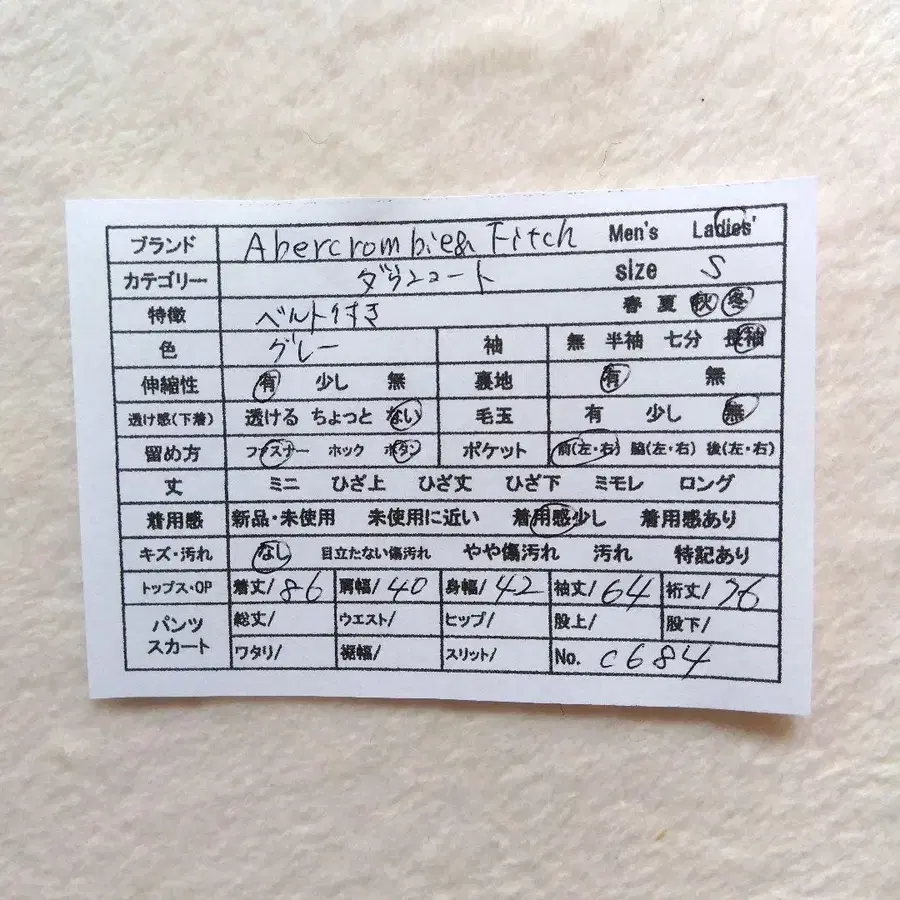 ブランド Abercrombie& Fitch Men's Ladies'
カテゴリー ダウンコート size S
特徴 ベルト付き 春 夏 秋 冬
色 グレー 袖 無 半袖 七分 長袖
伸縮性 有 少し 無 裏地 有 無
透け感(下着) 透ける ちょっと ない 毛玉 有 少し 無
留め方 ファスナー ホック ボタン ポケット 前(左・右) 脇(左・右) 後(左・右)
丈 ミニ ひざ上 ひざ丈 ひざ下 ミモレ ロング
着用感 新品・未使用 未使用に近い 着用感少し 着用感あり
キズ・汚れ なし 目立たない傷汚れ やや傷汚れ 汚れ 特記あり
トップス・OP 着丈/86 肩幅/40 身幅/42 袖丈/64 裄丈/76
パンツ スカート 総丈/ ウエスト/ ヒップ/ 股上/ 股下/
ワタリ/ 裾幅/ スリット/ No. c684